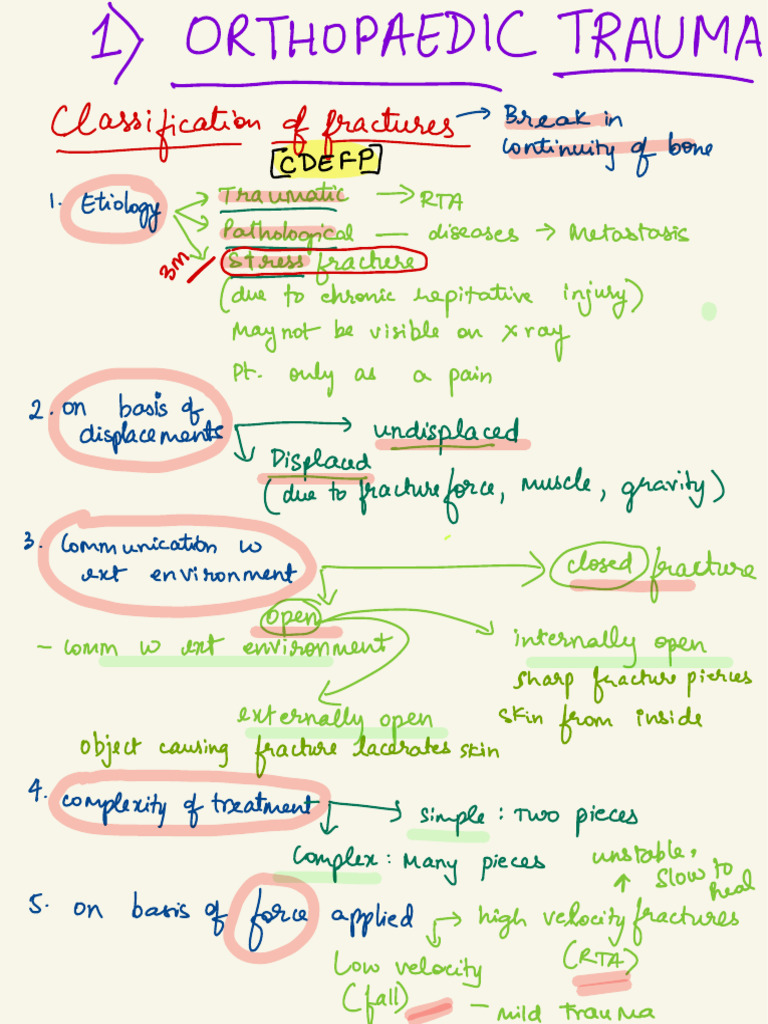 1) ORTHOPAEDIC TRAUMA
Classification of fractures → Break in
continuity of bone
[CDEFP]
1. Etiology → Traumatic → RTA
Pathological — diseases → Metastasis
3M Stress fracture
(due to chronic repitative injury)
May not be visible on x ray
Pt. only as a pain
2. on basis of
displacements → undisplaced
Displaced
(due to fracture force, muscle, gravity)
3. Communication w
ext environment → closed fracture
open
- comm w ext environment
internally open
sharp fracture pierces
skin from inside
externally open
object causing fracture lacerates skin
4. complexity of treatment → simple : Two pieces
Complex : Many pieces
unstable,
slow to
heal
5. on basis of force applied → high velocity fractures
(RTA)
Low velocity
(fall) - mild trauma